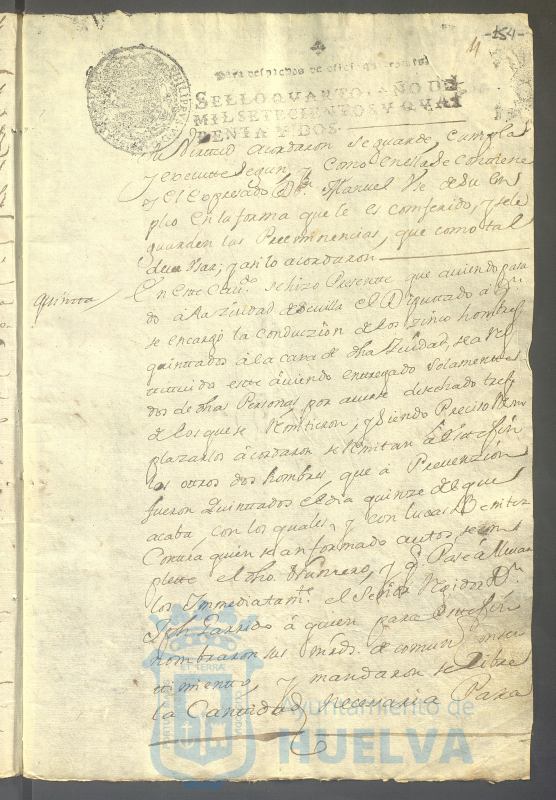 -154-
11
Para despachos de oficio quatro mrs
SELLO QVARTO, AÑO DE
MIL SETECIENTOS Y QVAR
RENTA Y DOS.
su Virtud acordaron se guarde, cumpla
y execute segun, y como en ella se contiene
y el expresado Dn. Manuel Use de su em
pleo en la forma que le es conferido, y se le
guarden las Preeminencias, que como tal
deve usar; y asi lo acordaron
Quintta
En este Cavdo. se hizo Presente que aviendo pasa
do à la Ziudad de Sevilla el Diputtado à qn.
se encargò la conduczion de los zinco hombres
quinttados à la caxa de dha Ziudad, se à
este aviendo entregado solamente
dos de dhas Personas por averse desechado tres
de los que se remitieron, y siendo Preciso Reem
plazarlos acordaron se remitan à este fin
los otros dos hombres que à Prevenzion
fueron quinttados el dia quinze de que
acaba, con los quales, y con Lucas Benitez
Contra quien se an formado autos, se com
plette el dho Numero, y qe. Pase à llevar
los Immediatamte. el Señor Regidor Dn.
Jph Garrido à quien para este fin
nombraron sus mrds. de comun
timiento, y mandaron se libre
la Cantidad necesaria Para
Ayuntamiento de
HUELVA